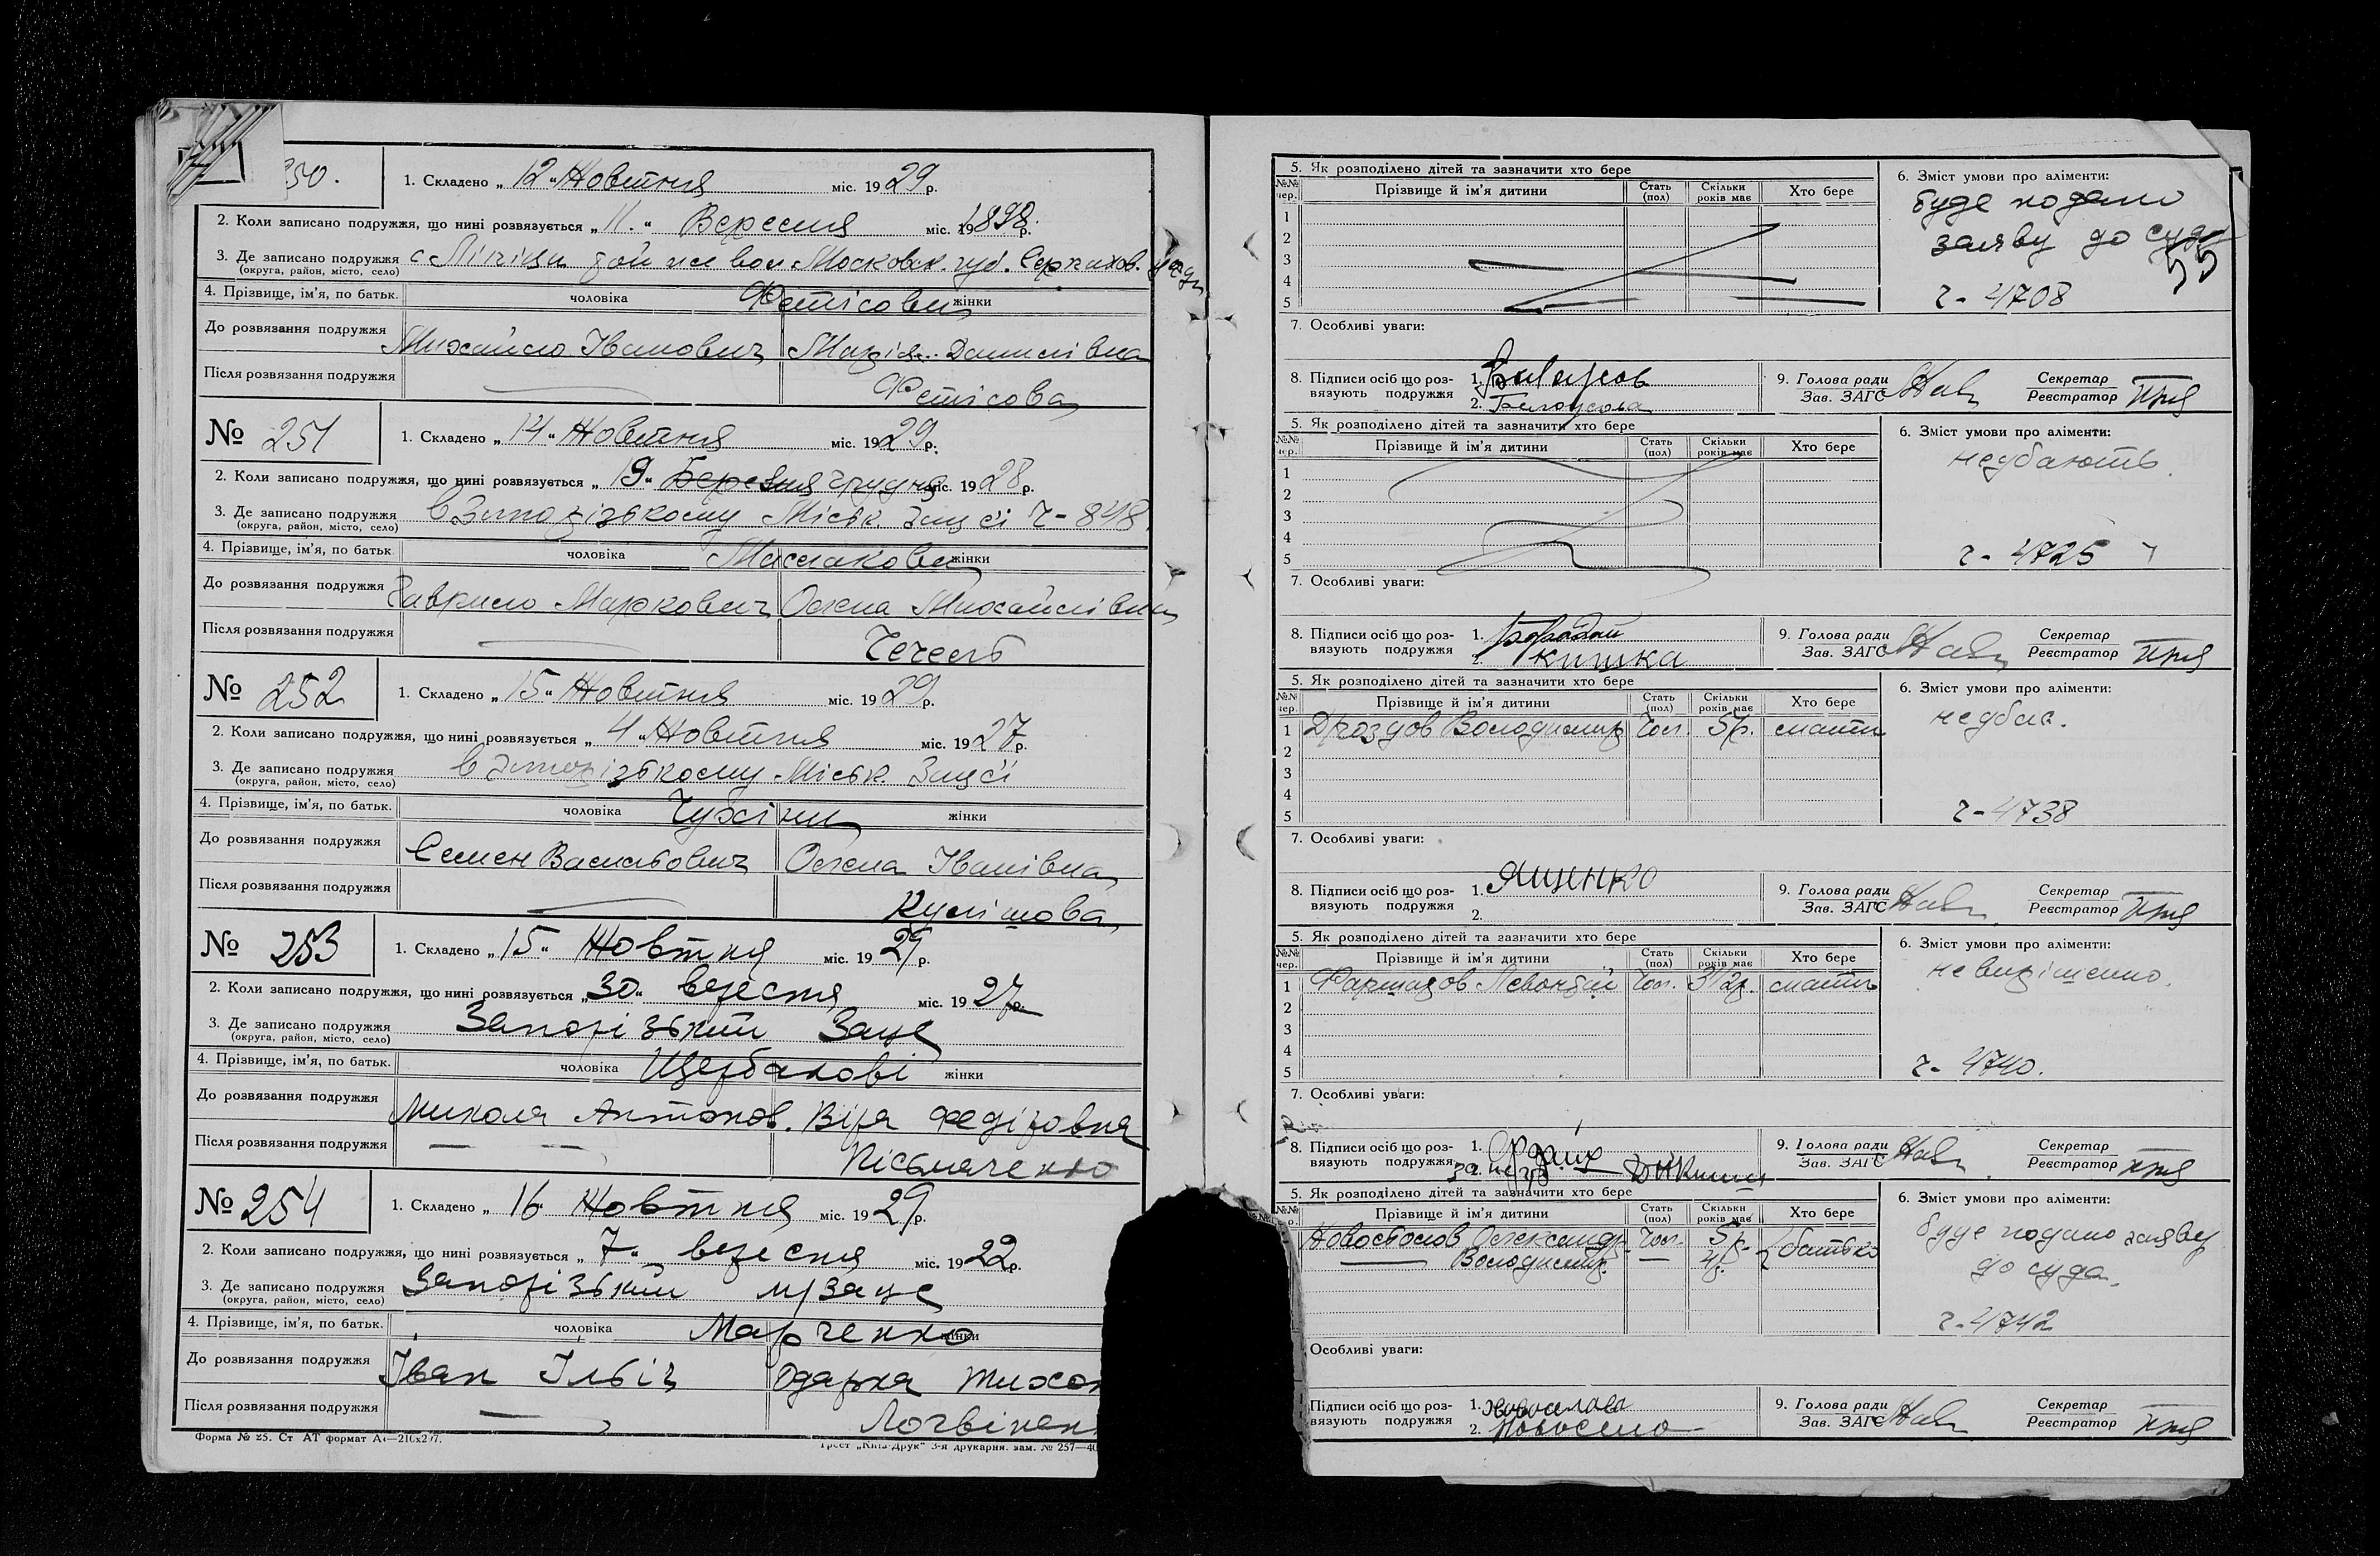 250.
1. Складено „ 12 " Жовтня міс. 1929 р.
2. Коли записано подружжя, що нині розвязується „ 11. " Вересня міс. 1898 р.
3. Де записано подружжя с Московск. губ. Серпухов.
(округа, район, місто, село)
4. Прізвище, ім'я, по батьк. чоловіка Фетісови жінки
До розвязання подружжя Михайло Іванович Марія Данилівна
Після розвязання подружжя Фетісова
№ 251
1. Складено „ 14 " Жовтня міс. 1929 р.
2. Коли записано подружжя, що нині розвязується „ 19 " Березня грудня міс. 1928 р.
3. Де записано подружжя в Запорізькому Міськ. Загсі ч-848.
(округа, район, місто, село)
4. Прізвище, ім'я, по батьк. чоловіка Маслакови жінки
До розвязання подружжя Гаврило Маркович Олена Михайлівна
Після розвязання подружжя Чечель
№ 252
1. Складено „ 15 " Жовтня міс. 1929 р.
2. Коли записано подружжя, що нині розвязується „ 4 " Жовтня міс. 1927 р.
3. Де записано подружжя в Запорізькому Міськ. Загсі
(округа, район, місто, село)
4. Прізвище, ім'я, по батьк. чоловіка жінки
До розвязання подружжя Семен Васильович Олена Іванівна
Після розвязання подружжя Кулішова
№ 253
1. Складено „ 15 " Жовтня міс. 1929 р.
2. Коли записано подружжя, що нині розвязується „ 30 " вересня міс. 1927 р.
3. Де записано подружжя Запорізький Загс
(округа, район, місто, село)
4. Прізвище, ім'я, по батьк. чоловіка Щербакові жінки
До розвязання подружжя Микола Антонов. Віра Федіровна
Після розвязання подружжя Písьмаченко
№ 254
1. Складено „ 16 " Жовтня міс. 1929 р.
2. Коли записано подружжя, що нині розвязується „ 7 " вересня міс. 1922 р.
3. Де записано подружжя Запорізький м/загс
(округа, район, місто, село)
4. Прізвище, ім'я, по батьк. чоловіка Марченко жінки
До розвязання подружжя Іван Ільіч Одарка Тихон
Після розвязання подружжя Логвінен
Форма № 25. Ст АТ формат А4—210х297.
Трест „Київ-Друк" 3-я друкарня. зам. № 257—40
5. Як розподілено дітей та зазначити хто бере
№№ чер. Прізвище й ім'я дитини Стать (пол) Скільки років має Хто бере
1
2
3
4
5
6. Зміст умови про аліменти:
буде подано
заяву до суду
55
ч- 4708
7. Особливі уваги:
8. Підписи осіб що розвязують подружжя 1.
2. Белоусова
9. Голова ради
Зав. ЗАГС
Секретар
Реєстратор
5. Як розподілено дітей та зазначити хто бере
№№ чер. Прізвище й ім'я дитини Стать (пол) Скільки років має Хто бере
1
2
3
4
5
6. Зміст умови про аліменти:
недбають.
ч- 4725
7. Особливі уваги:
8. Підписи осіб що розвязують подружжя 1.
2. кишка
9. Голова ради
Зав. ЗАГС
Секретар
Реєстратор
5. Як розподілено дітей та зазначити хто бере
№№ чер. Прізвище й ім'я дитини Стать (пол) Скільки років має Хто бере
1 Дроздов Володимир Чол. 5 р. мати
2
3
4
5
6. Зміст умови про аліменти:
недбає.
ч- 4738
7. Особливі уваги:
8. Підписи осіб що розвязують подружжя 1. Яценко
2.
9. Голова ради
Зав. ЗАГС
Секретар
Реєстратор
5. Як розподілено дітей та зазначити хто бере
№№ чер. Прізвище й ім'я дитини Стать (пол) Скільки років має Хто бере
1 Чол. 3 1/2 р. мати
2
3
4
5
6. Зміст умови про аліменти:
невирішенно.
ч- 4740.
7. Особливі уваги:
8. Підписи осіб що розвязують подружжя 1.
2.
9. Голова ради
Зав. ЗАГС
Секретар
Реєстратор
5. Як розподілено дітей та зазначити хто бере
Прізвище й ім'я дитини Стать (пол) Скільки років має Хто бере
Олександр Чол. 5 р. батько
Володимир — 4 р.
6. Зміст умови про аліменти:
буде подано заяву
до суда.
ч- 4742
Особливі уваги:
Підписи осіб що розвязують подружжя 1.
2.
9. Голова ради
Зав. ЗАГС
Секретар
Реєстратор